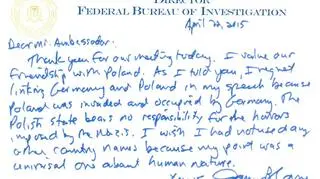 DIRECTOR
FEDERAL BUREAU OF INVESTIGATION
April 22, 2015
Dear Mr. Ambassador.
Thank you for our meeting today. I value our
friendship with Poland. As I told you, I regret
linking Germany and Poland in my speech because
Poland was invaded and occupied by Germany. The
Polish state bears no responsibility for the horrors
imposed by the Nazis. I wish I had not used any
other country names because my point was a
universal one about human nature.